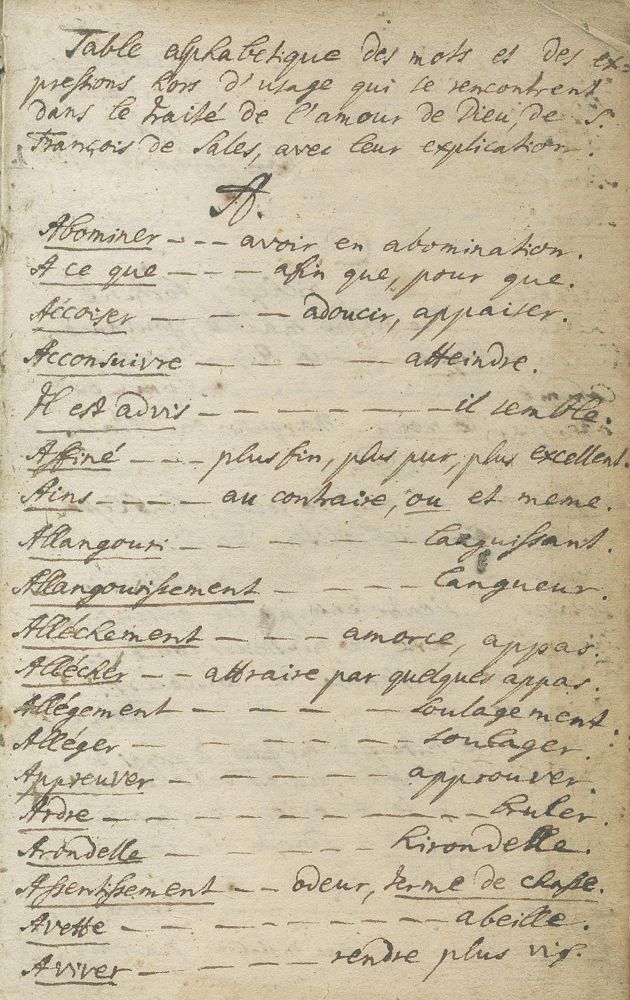 Table alphabetique des mots et des ex=
pressions hors d'usage qui se rencontrent
dans le traité de l'amour de Dieu, de S.
François de Sales, avec leur explication.
A.
Abominer - - - avoir en abomination.
A ce que - - - afin que, pour que.
Accoiser - - - - adoucir, appaiser.
Acconsuivre - - - - - atteindre.
Il est advis - - - - - - - il semble.
Affiné - - - plus fin, plus pur, plus excellent.
Ains - - - - au contraire, ou et meme.
Allangouri - - - - - languissant.
Allangourissement - - - - langueur.
Alléchement - - - - amorce, appas.
Allécher - - attraire par quelques appas.
Allégement - - - - - soulagement.
Alléger - - - - - - - soulager.
Appreuver - - - - - - approuver.
Ardre - - - - - - - - - - bruler.
Arondelle - - - - - - hirondelle.
Assentissement - - odeur, terme de chasse.
Avette - - - - - - - - abeille.
Aviver - - - - - rendre plus vif.